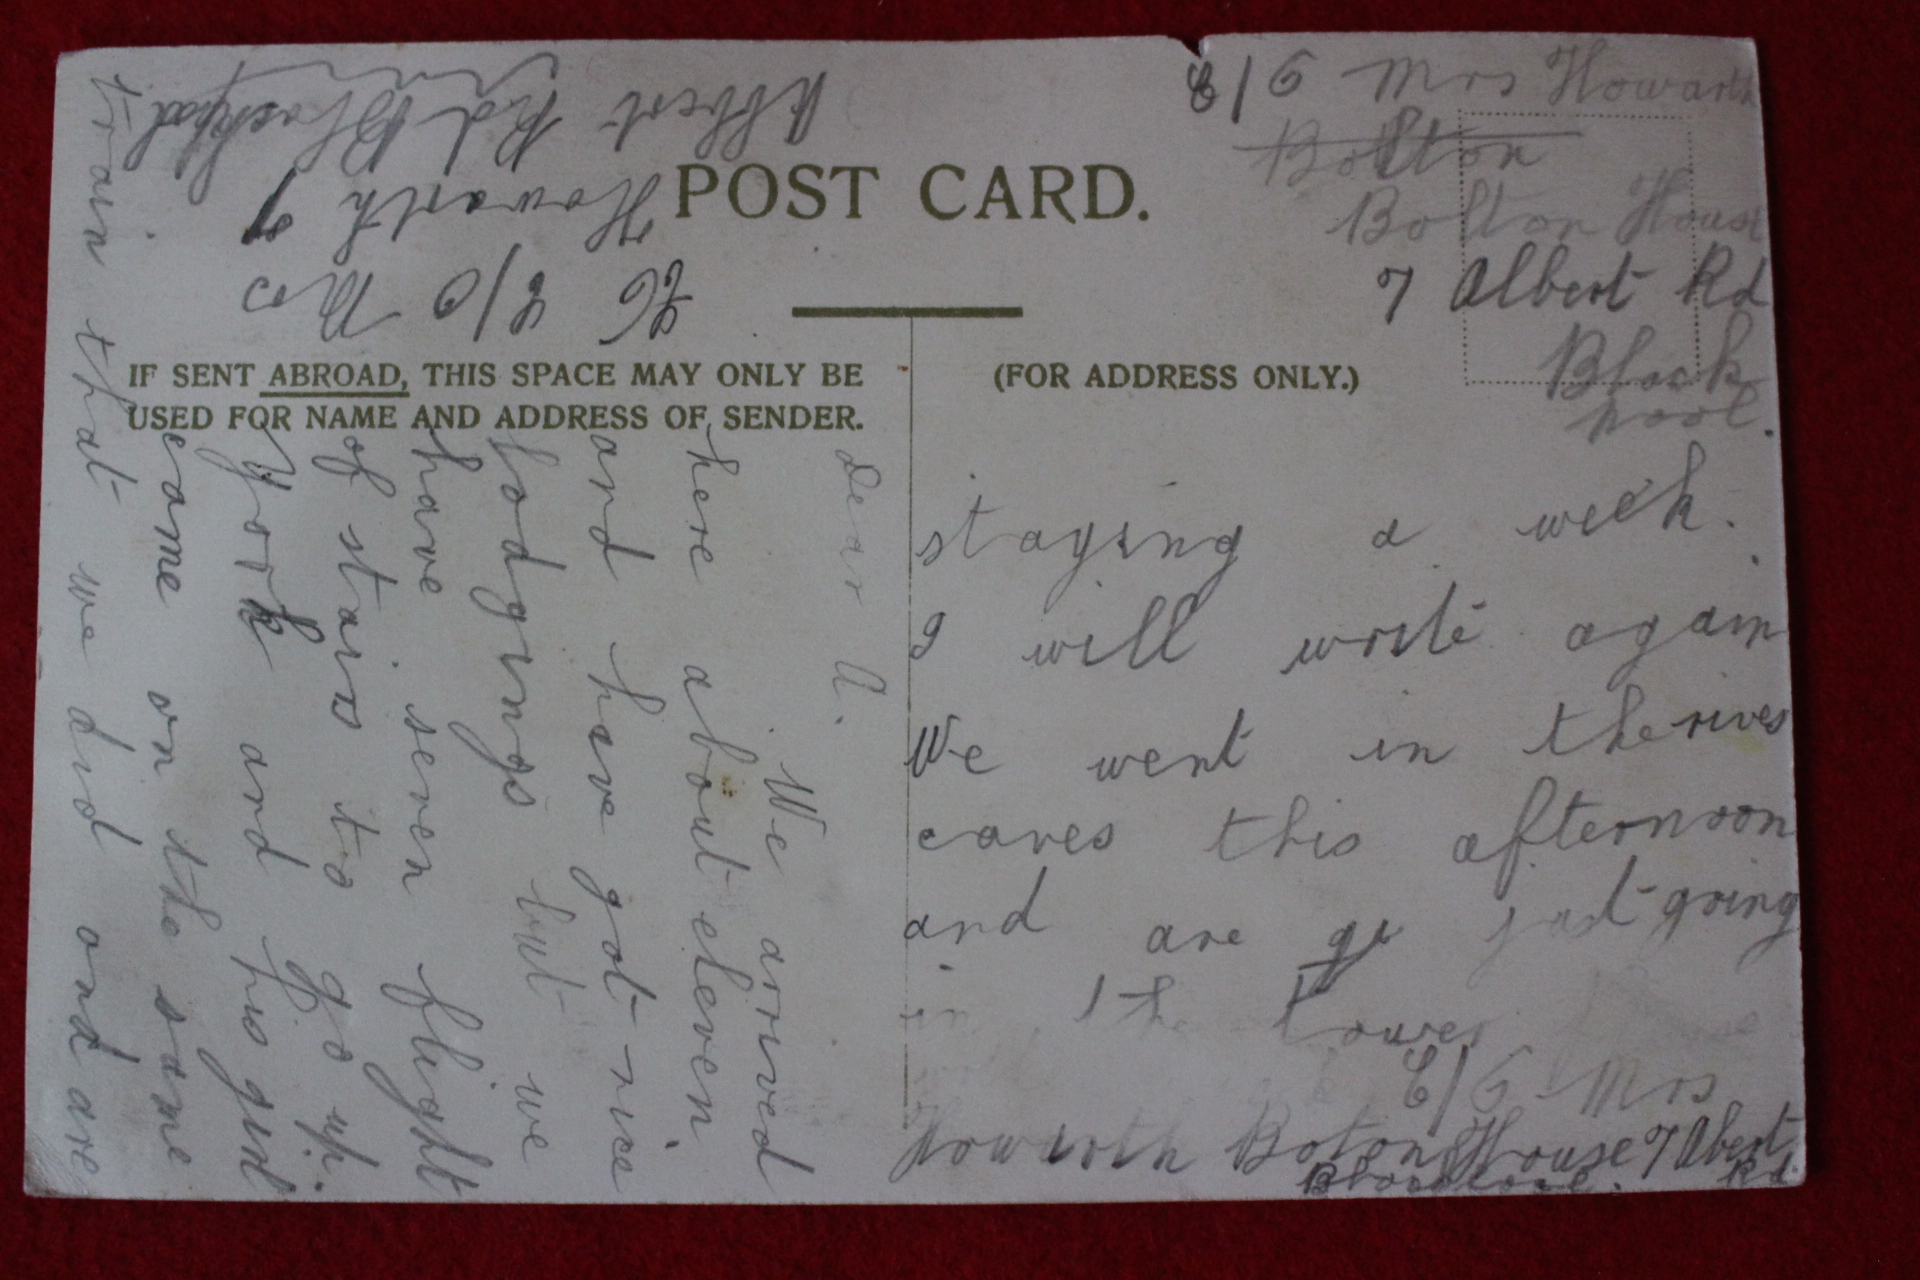 POST CARD.
IF SENT ABROAD, THIS SPACE MAY ONLY BE
USED FOR NAME AND ADDRESS OF SENDER.
(FOR ADDRESS ONLY.)
C/O Mrs Howarth
Bolton
Bolton House
7 Albert Rd
Black
pool.
Dear A.
We arrived
here about eleven
and have got nice
lodgings but we
have seven flight
of stairs to go up.
York and his girl
came on the same
train that we did and are
staying a week.
I will write again
We went in the rives
caves this afternoon
and are go just going
in the tower
C/O Mrs
Howarth Boton House 7 Abert
Rd
C/O Mrs
Howarth 7
Albert Rd Blackpool